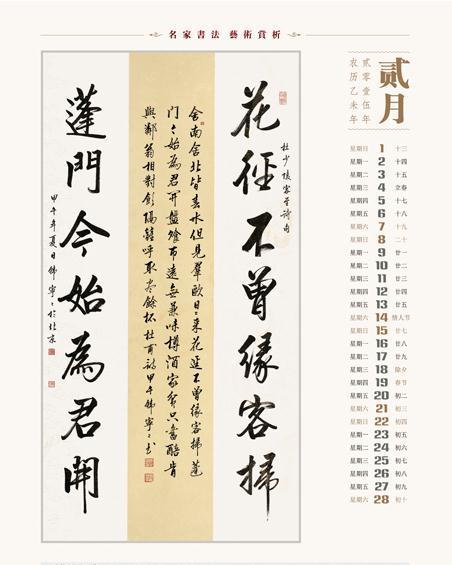 名家書法 藝術賞析
贰月
貳零壹伍年
农历乙未年
花徑不曾緣客掃
杜少陵客至詩句
舍南舍北皆春水但見羣鷗日日來花徑不曾緣客掃蓬
門今始為君開盤飧市遠無兼味樽酒家貧只舊醅肯
與鄰翁相對飲隔籬呼取盡餘杯杜甫詩甲午
蓬門今始為君開
甲午年夏日
於北京
星期日 1 十三
星期一 2 十四
星期二 3 十五
星期三 4 立春
星期四 5 十七
星期五 6 十八
星期六 7 十九
星期日 8 二十
星期一 9 廿一
星期二 10 廿二
星期三 11 廿三
星期四 12 廿四
星期五 13 廿五
星期六 14 情人节
星期日 15 廿七
星期一 16 廿八
星期二 17 廿九
星期三 18 除夕
星期四 19 春节
星期五 20 初二
星期六 21 初三
星期日 22 初四
星期一 23 初五
星期二 24 初六
星期三 25 初七
星期四 26 初八
星期五 27 初九
星期六 28 初十